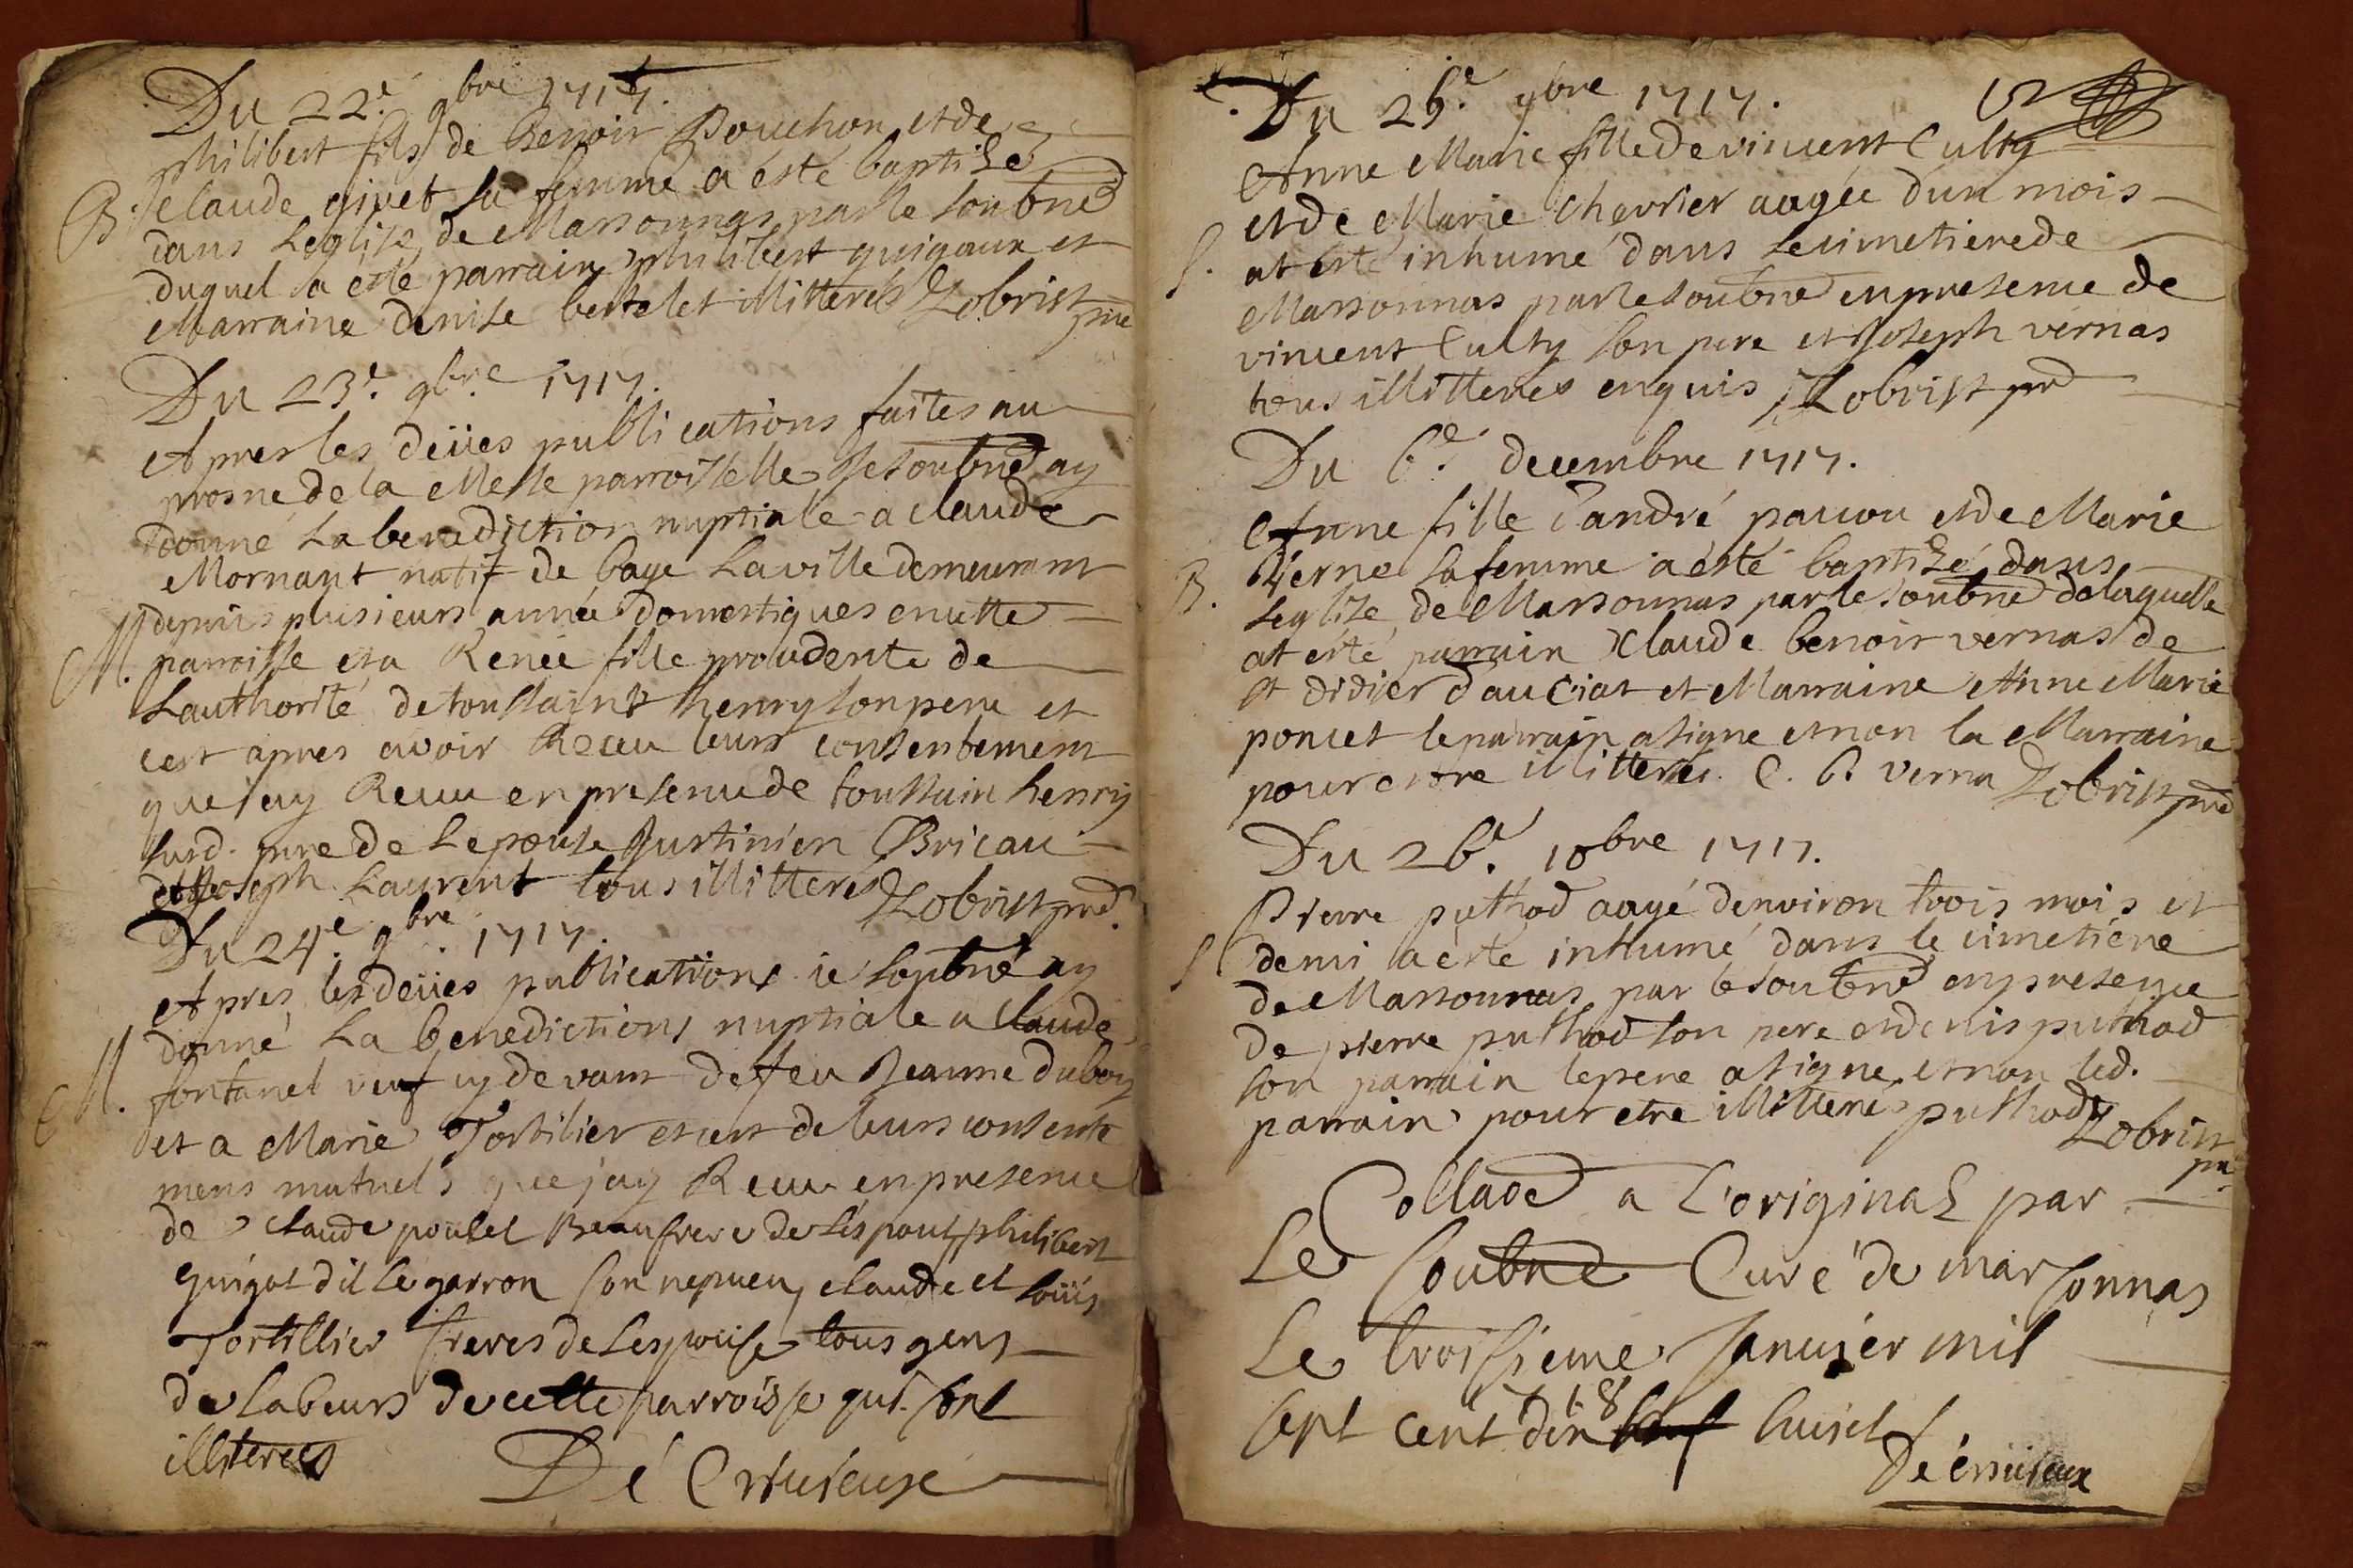 Du 22e. 9bre 1717.
philibert fils de Benoir Pouchon et de
B. claude givet sa femme a ésté baptisé
dans Leglise de Marsonnas par le soubné
duquel a esté parrain philibert guigaux et
Marraine denise bertelet illitterés Lobrist pre
Du 23e. 9bre 1717.
Apres les deües publications faites au
prosne de la Messe parroisselle Je soubné ay
donné La benediction nuptiale a claude
Mornant natif de bagé La ville demeurant
depuis plusieurs année domestiques en cette
M. parroisse et a Renée fille proudente de
Lauthorité de toussaint henry son pere et
cest apres avoir Receu leurs consentement
que jay Receu en presence de toussain henry
susd. pere de Lepouse Justinien Bricau
et Joseph Laurent tous illitterés Lobrist pre.
Du 24e. 9bre. 1717.
Apres les deües publications ie soubné ay
donné La benediction nuptiale a Claude
M. fontanel veuf cy devant de feu Jeanne duboy
et a Marie Tortilier et cest de leurs consente
mens mutuels que jay Receu en presence
de claude poulet Beaufrere de Lespoux philibert
guigot dit le garron son nepueu, claude et Loüis
Tortillier freres de Lespouse tous gens
de labeurs de cette parroisse qui sont
illiterees
De Cruieux
Du 29e. 9bre 1717.
Anne Marie fille de vincent Culty
et de Marie Chevrier aagée dun mois
S. at esté inhumé dans le cimetiere de
Marsonnas par le soubné en presence de
vincent Culty son pere et Joseph vernas
tous illitterés enquis Lobrist pre
Du 6e. decembre 1717.
Anne fille d'andré paucou et de Marie
B. Verne sa femme a esté baptisé dans
Leglise de Marsonnas par le soubné de laquelle
at esté parrain Claude benoir vernas de
st didier d'auciat et Marraine Anne Marie
poncet le parrain a signe et non la Marraine
pour estre illitterés. C. B verna Lobrist pre
Du 26e. 10bre 1717.
Pierre puthod aagé denviron trois mois et
S. demi a esté inhumé dans le cimetiere
de Marsonnas par le soubné en presence
de pierre puthod son pere et denis puthod
son parrain le pere a signe et non led.
parrain pour etre illitteré puthod Lobrist
pre
Collaoé a L'original par
Le soubné Curé de marsonnas
Le troisieme Janvier mil
18
sept cent dix huict
De Cruieux